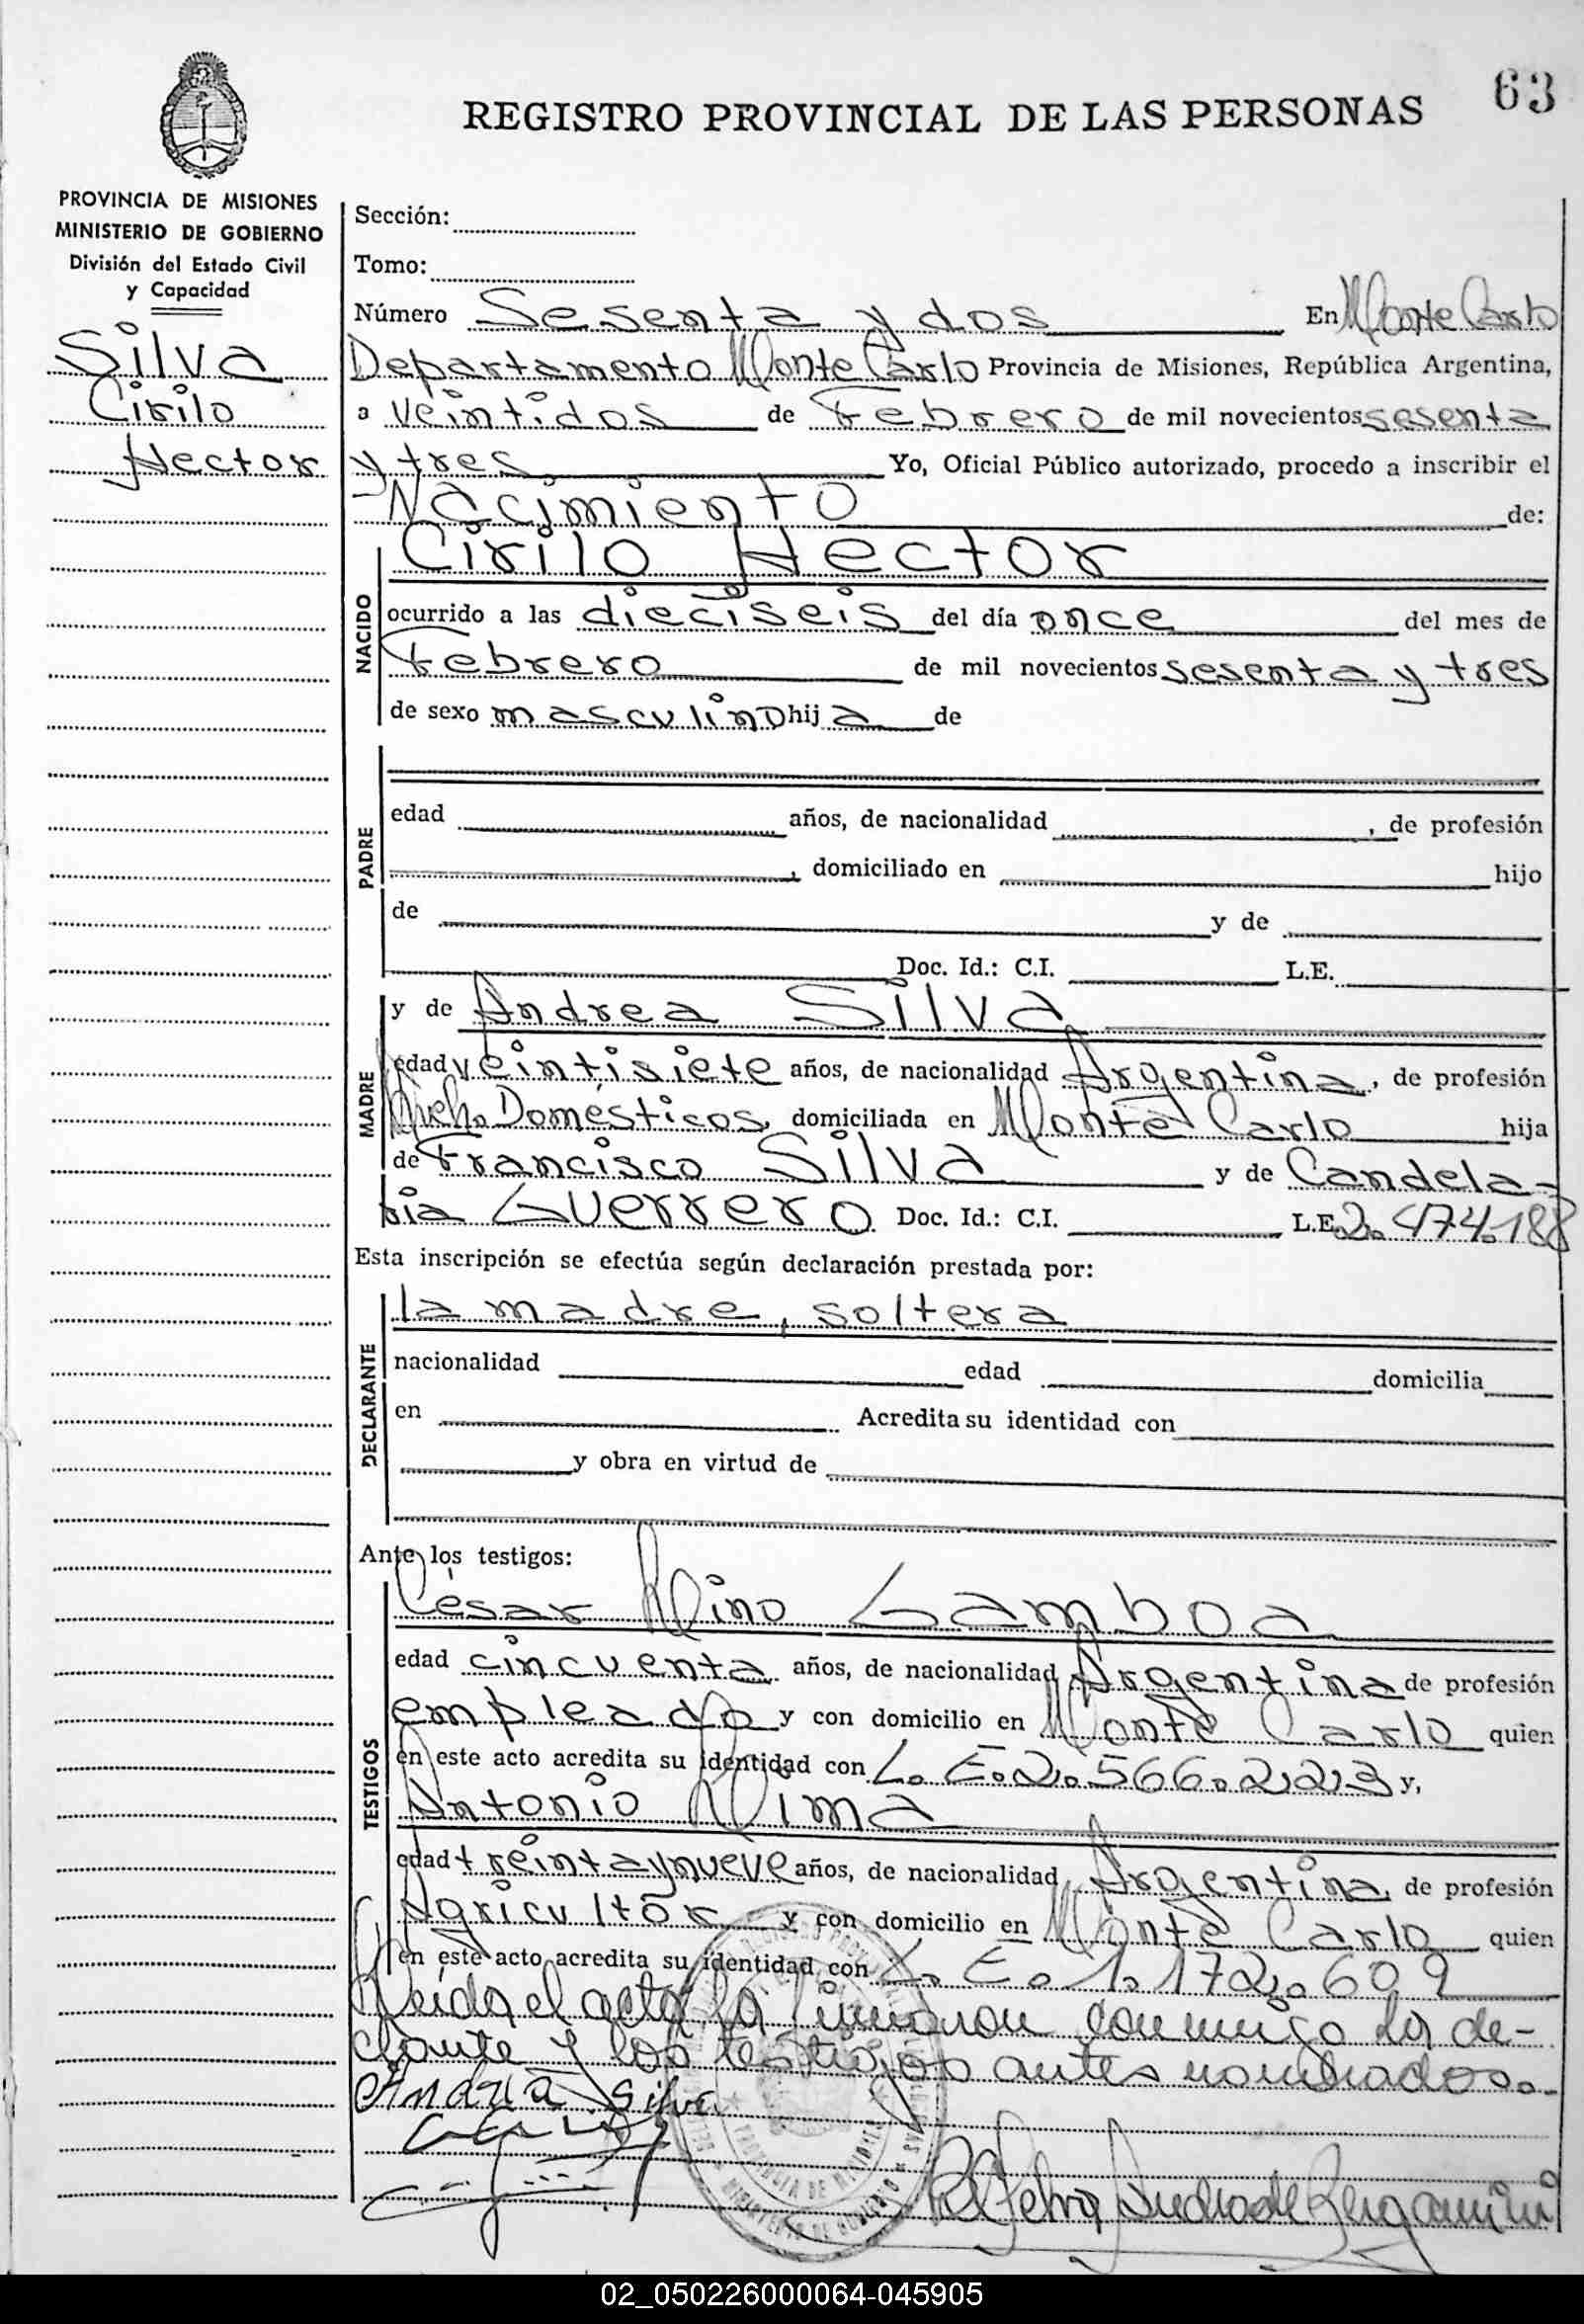 63
REGISTRO PROVINCIAL DE LAS PERSONAS
PROVINCIA DE MISIONES
MINISTERIO DE GOBIERNO
División del Estado Civil
y Capacidad
Silva
Cirilo
Hector
Sección:
Tomo:
Número Sesenta y dos En Monte Carlo
Departamento Monte Carlo Provincia de Misiones, República Argentina,
a veintidos de Febrero de mil novecientos sesenta
y tres Yo, Oficial Público autorizado, procedo a inscribir el
Nacimiento de:
NACIDO
Cirilo Hector
ocurrido a las dieciseis del día once del mes de
Febrero de mil novecientos sesenta y tres
de sexo masculino hij a de
PADRE
edad años, de nacionalidad , de profesión
, domiciliado en hijo
de y de
Doc. Id.: C.I. L.E.
MADRE
y de Andrea Silva
edad veintisiete años, de nacionalidad Argentina, de profesión
Domésticos, domiciliada en Monte Carlo hija
de Francisco Silva y de Candela-
ria Guerrero Doc. Id.: C.I. L.E. 2.474.188
Esta inscripción se efectúa según declaración prestada por:
DECLARANTE
la madre, soltera
nacionalidad edad domicilia
en Acredita su identidad con
y obra en virtud de
Ante los testigos:
TESTIGOS
César Nino Gamboa
edad cincuenta años, de nacionalidad Argentina de profesión
empleado y con domicilio en Monte Carlo quien
en este acto acredita su identidad con L. E. 2.566.223 y,
Antonio
edad treinta y nueve años, de nacionalidad Argentina, de profesión
Agricultor y con domicilio en Monte Carlo quien
en este acto acredita su identidad con L. E. 1.172.609
Leida el acta la firmaron conmigo la de-
clante y los testigos antes nombrados.
Silva
PROVINCIA DE MISIONES
MINISTERIO DE GOBIERNO
02_050226000064-045905